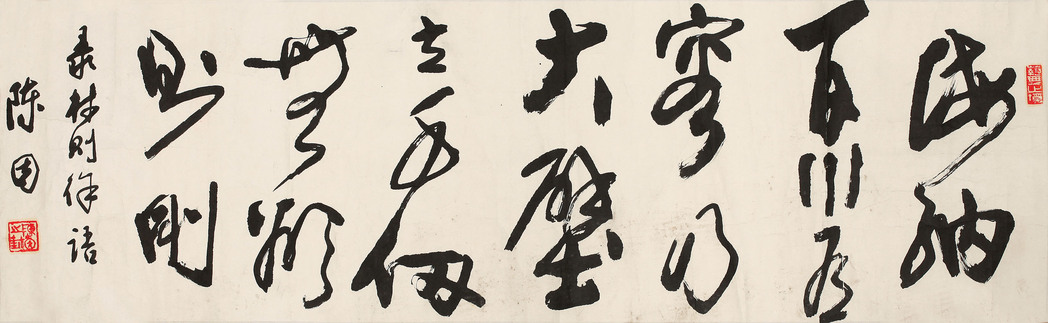 海纳
百川有
容乃
大壁
立千仞
無欲
则刚
录林则徐语
陈